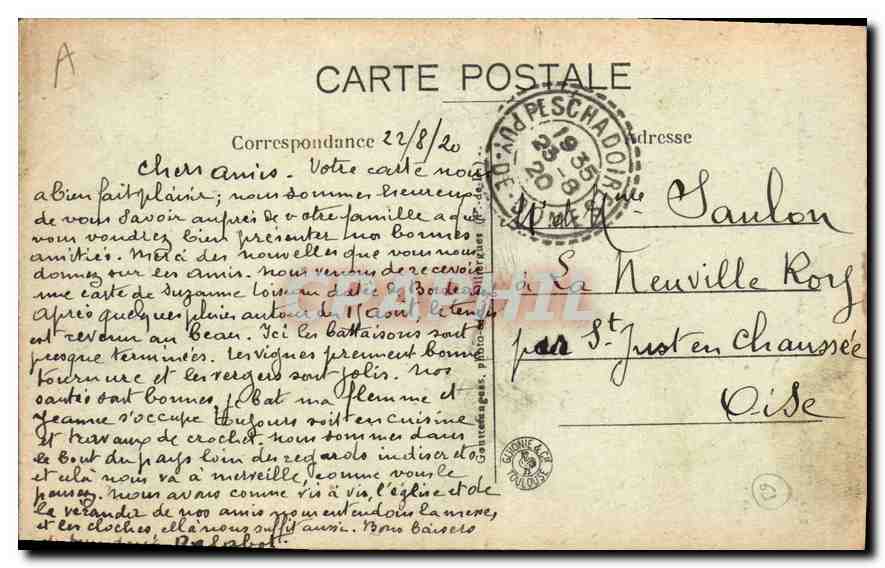 A
CARTE POSTALE
Correspondance 22/8/20
Adresse
Chers amis. Votre carte nous
a bien fait plaisir; nous sommes heureux
de vous savoir auprès de votre famille a qui
vous voudrez bien présenter nos bonnes
amitiés. Merci des nouvelles que vous nous
donnez sur les amis. Nous venons de recevoir
une carte de Suzanne Loiseau datée de Bordeaux
après quelques pluies autour du 15 aout, le temps
est revenu au beau. Ici les battaisons sont
presque terminées. Les vignes prennent bonne
tournure et les vergers sont jolis. Nos
santés sont bonnes, je bat ma flemme et
Jeanne s'occupe toujours soit en cuisine
et travaux de crochet. Nous sommes dans
le bout du pays loin des regards indiscrets
et celà nous va à merveille, comme vous le
pensez. Nous avons comme vis à vis, l'église et de
la vérandar de nos amis nous entendons la messe,
et les cloches, ella nous suffit aussi. Bons baisers
PUY-DE-DÔME
PESCHADOIRES
1935
23-8
20
Mr et Mme Saulon
à La Neuville Roy
par St. Just en Chaussée
Oise
GUIONIE & Cie
TOULOUSE
CPAPHIL